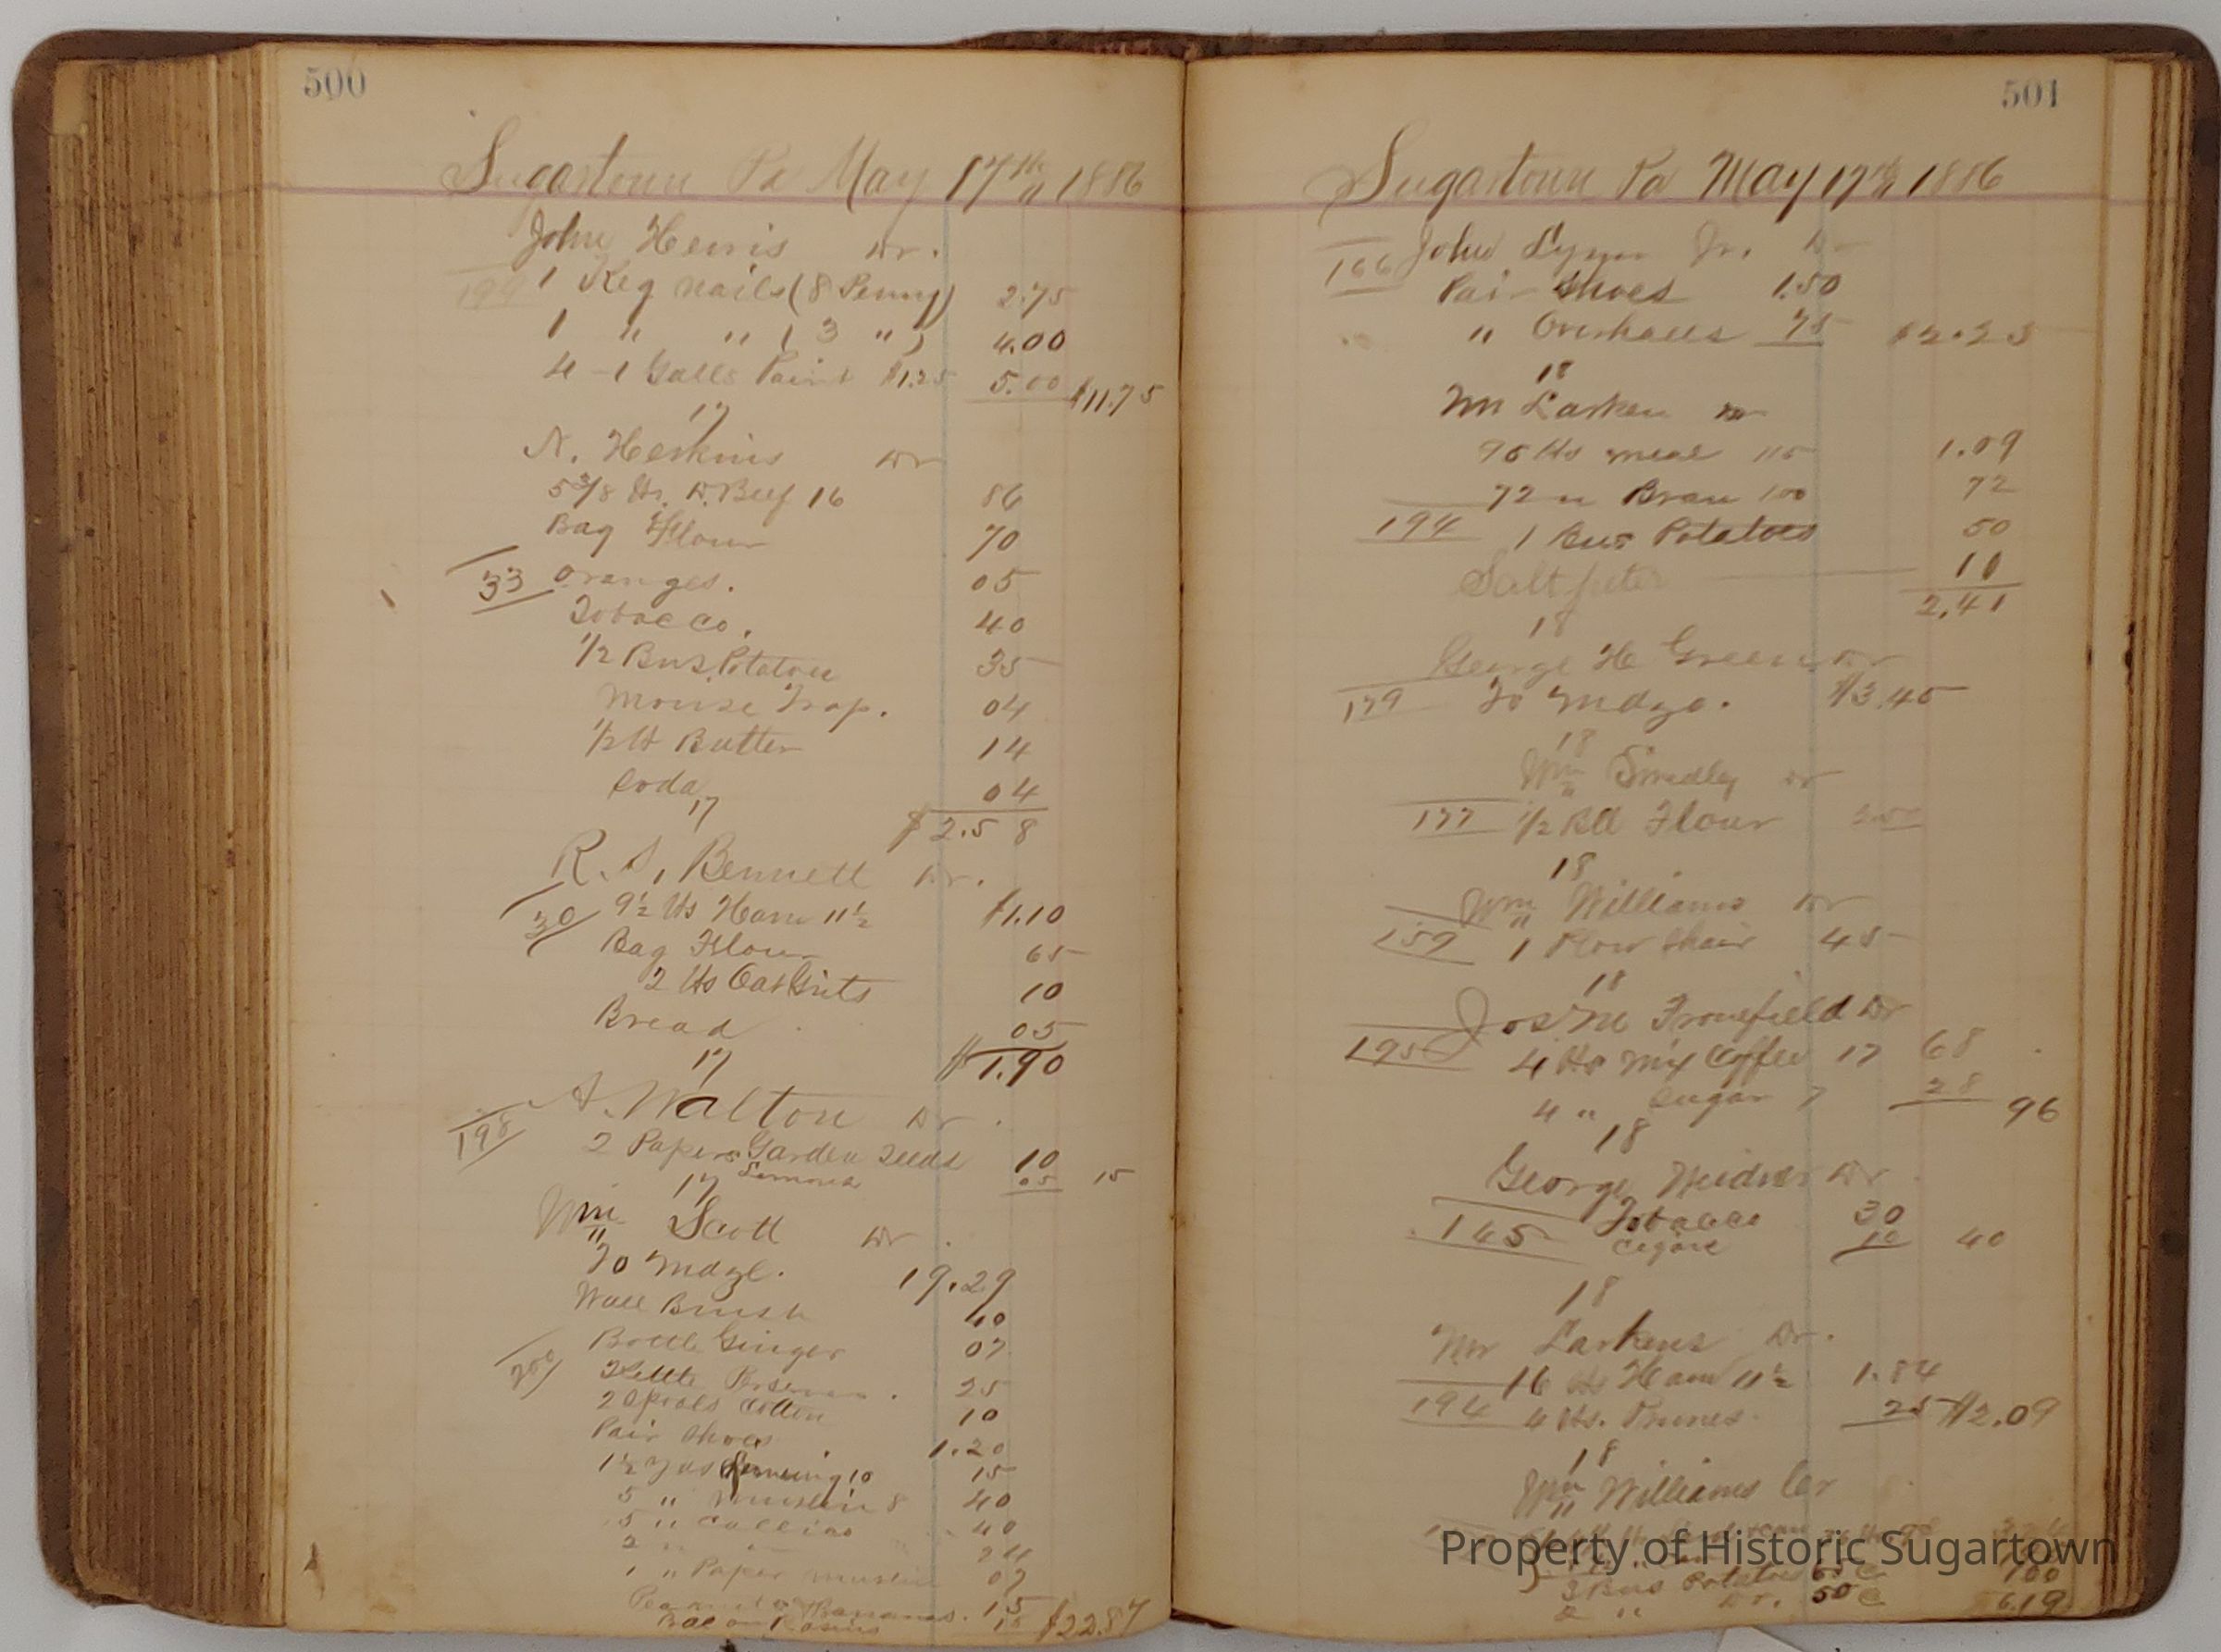 500
Sugartown Pa May 17th 1886
John Henris Dr.
199 1 Keg nails (8 Penny) 2.75
1 " " ( 3 " ) 4.00
4 - 1 Galls Paint $1.25 5.00 $11.75
17
N. Heskins Dr
5 3/8 lbs. D. Beef 16 86
Bag Flour 70
33 Oranges. 05
Tobacco. 40
1/2 Bus. Potatoes 35
Mouse Trap. 04
1/2 lb Butter 14
Soda 04
17
$2.58
R. S. Bennett Dr.
30 9 1/2 lbs Ham 11 1/2 $1.10
Bag Flour 65
2 lbs Oat Grits 10
Bread 05
17 $1.90
A. Walton Dr.
198 2 Papers Garden Seeds 10
17 05 15
Wm Scott Dr.
To Mdze. 19.29
Wall Brush 40
Bottle Ginger 07
200 Kettle 25
2 Spools Cotton 10
Pair Shoes 1.20
1 1/2 yds 10 15
5 " Muslin 8 40
5 " Callico 40
2 " " 24
1 " Paper muslin 07
Bananas. 15
$22.87
501
Sugartown Pa May 17th 1886
166 John Lynn Jr. Dr
Pair Shoes 1.50
" Overhalls 75 $2.25
18
Mr Larken Dr
95 lbs meal 115 1.09
72 " Bran 100 72
194 1 Bus Potatoes 50
Saltpeter 10
2.41
18
George H Green Dr
179 To Mdze. $3.45
18
Wm Smedley Dr
177 1/2 Bll Flour
18
Wm Williams Dr
159 1 Plow Shair 45
18
Jos M Fronefield Dr
195 4 lbs Mix Coffee 17 68
4 " Sugar 7 28 96
18
George Weidner Dr
165 Tobacco 30
Cigars 10 40
18
Mr Larkens Dr.
16 lbs Ham 11 1/2 1.84
194 4 lbs. Prunes 25 $2.09
18
Wm Williams Cr
3 Bus Potatoes
2 " 50 c 6.19
Property of Historic Sugartown